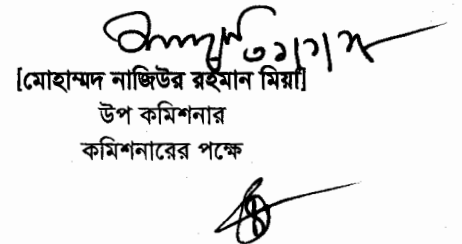 [মোহাম্মদ নাজিউর রহমান মিয়া]
উপ কমিশনার
কমিশনারের পক্ষে